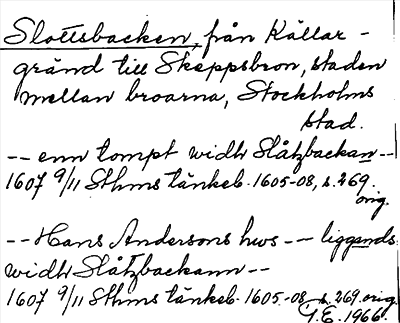 Slottsbacken, från Källar-
gränd till Skeppsbron, staden
mellan broarna, Stockholms
stad.
-- enn tompt widh Slåtzbackan --
1607 9/11 Sthms tänkeb. 1605-08, s. 269.
orig.
-- Hans Andersons hws -- liggands
widh Slåtzbackann --
1607 9/11 Sthms tänkeb. 1605-08, s. 269. orig.
G.E. 1966.